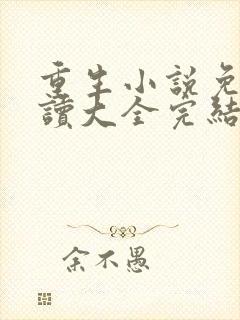 重生小說免
讀大全完結
余不愚